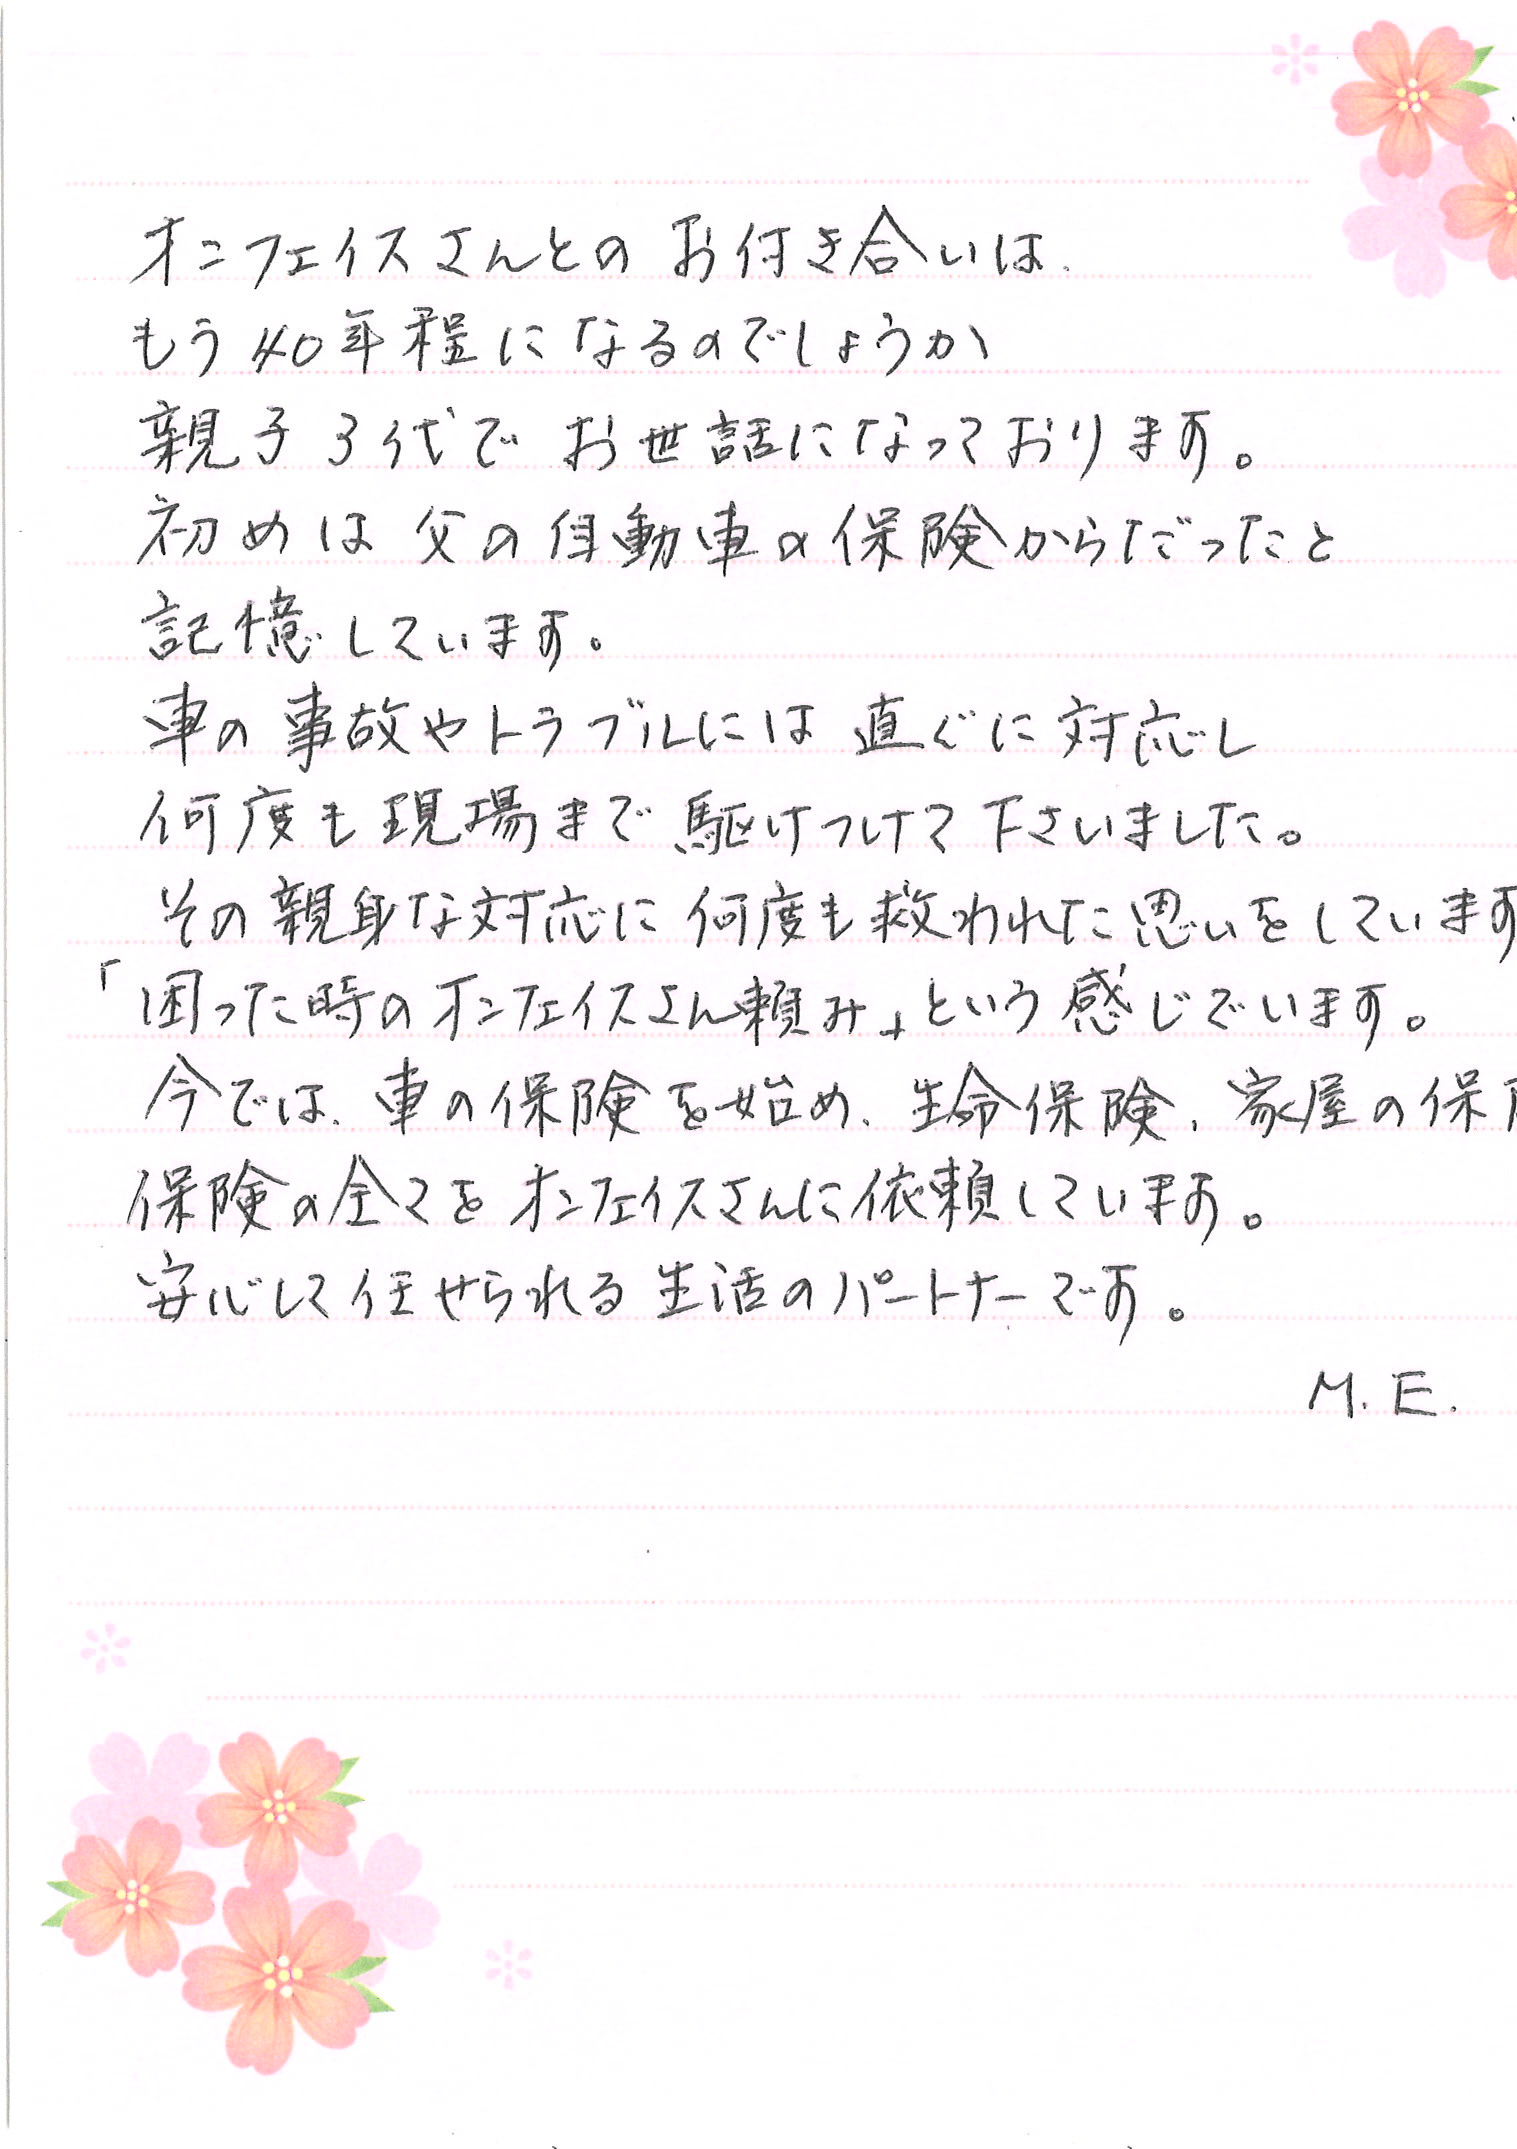 オンフェイスさんとの お付き合いは、
もう40年程になるのでしょうか
親子3代で お世話になっております。
初めは 父の自動車の保険からだったと
記憶しています。
車の事故やトラブルには 直ぐに対応し
何度も現場まで駆けつけて下さいました。
その親身な対応に何度も救われた思いをしています
「困った時のオンフェイスさん頼み」という感じでいます。
今では、車の保険を始め、生命保険、家屋の保
保険の全てをオンフェイスさんに依頼しています。
安心して任せられる生活のパートナーです。
M. E.